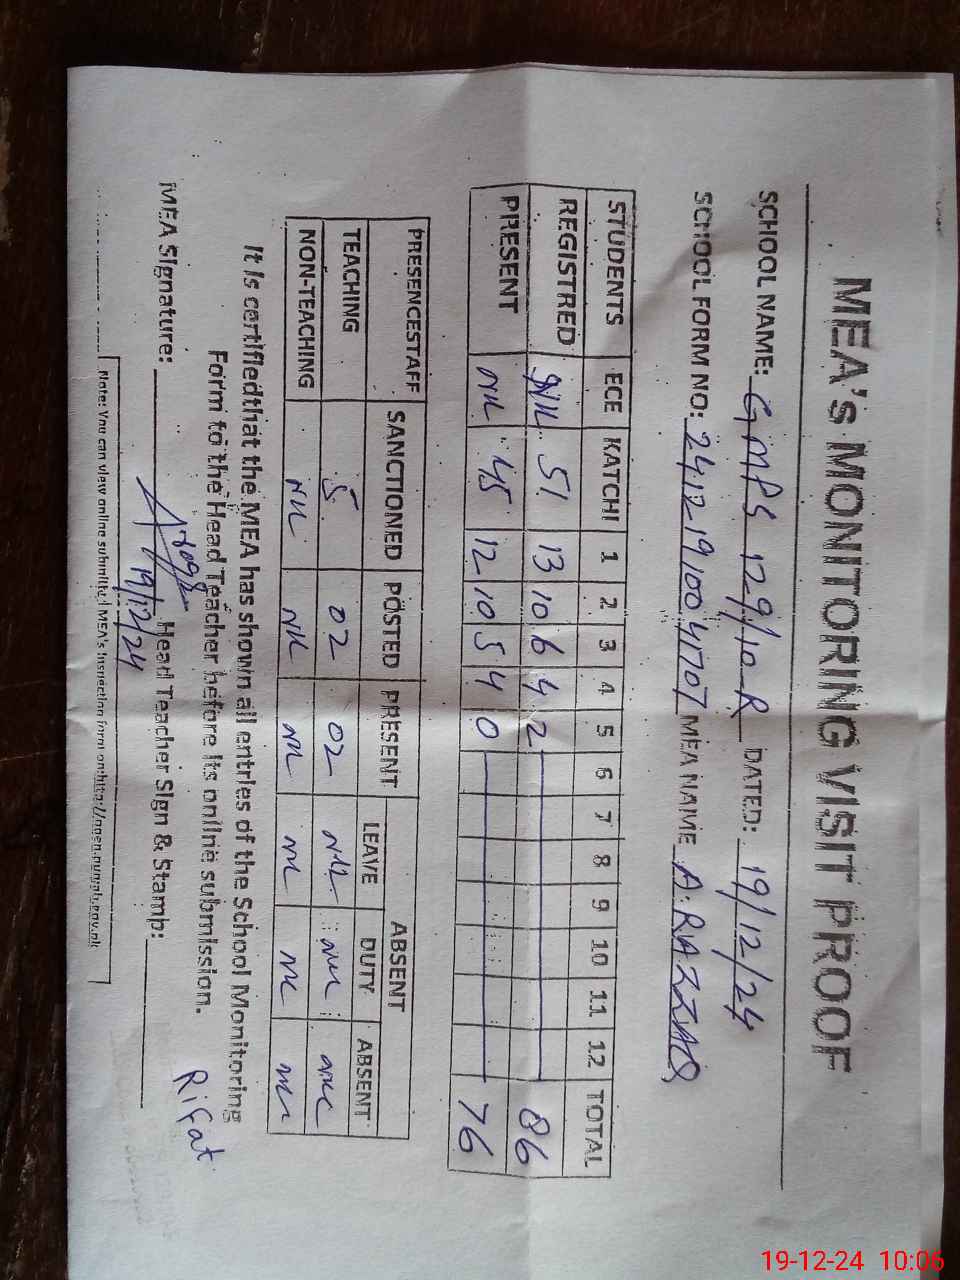 MEA's MONITORING VISIT PROOF
SCHOOL NAME: GMPS 129/10-R DATED: 19/12/24
SCHOOL FORM NO: MEA NAME A. RAZZAQ
STUDENTS ECE KATCHI 1 2 3 4 5 6 7 8 9 10 11 12 TOTAL
REGISTRED Nil 51 13 10 6 4 2 86
PRESENT Nil 45 12 10 5 4 0 76
PRESENCESTAFF SANCTIONED POSTED PRESENT ABSENT
LEAVE DUTY ABSENT
TEACHING 5 02 02 Nil Nil Nil
NON-TEACHING Nil Nil Nil Nil Nil Nil
It is certifiedthat the MEA has shown all entries of the School Monitoring
Form to the Head Teacher before its online submission.
Rifat
MEA Signature: Head Teacher Sign & Stamp:
19/12/24
Note: You can view online submitted MEA's inspection form onhttp://open.punjab.gov.pk
19-12-24 10:06